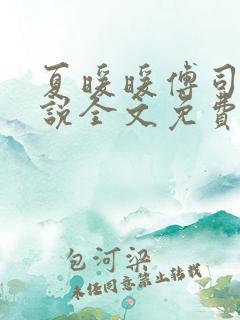 夏暖暖傅司
说全文免费
包河梁
未经同意禁止转载